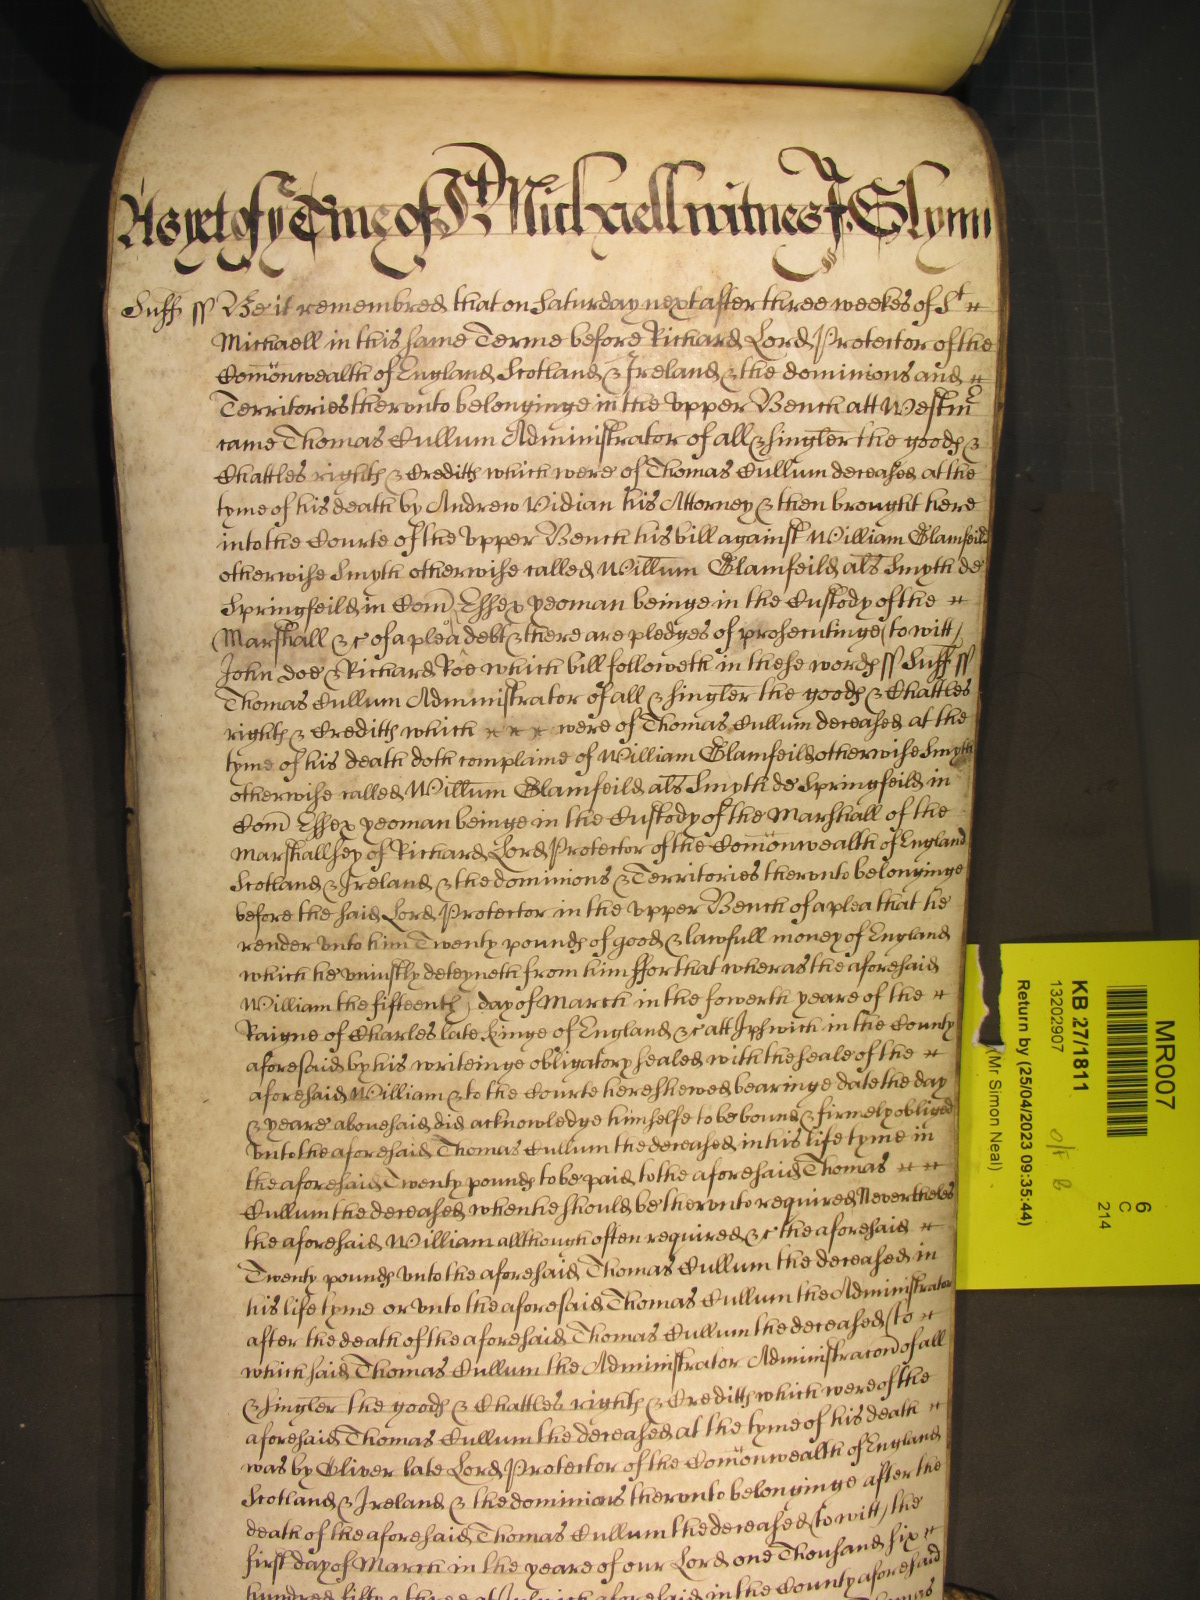 As yet of ye Tme of St Michaell witnes J. Glynn
Suff ss Be it remembred that on Saturday next after three weekes of St
Michaell in this same Terme before Richard Lord Protector of the
Comonwealth of England Scotland & Ireland & the dominions and
Territories therunto belonginge in the Vpper Bench att Westm
came Thomas Cullum Administrator of all & singler the goods &
Chattles rights & Creditts which were of Thomas Cullum deceased at the
tyme of his death by Andrew Vidian his Attorney & then brought here
into the Courte of the Vpper Bench his bill against William Glamfeild
otherwise Smyth otherwise called Willum Glamfeild als Smyth de
Springfeild in Com Essex yeoman beinge in the Custody of the
Marshall &c of a plea debt & there are pledges of prosecutinge (to witt)
John Doe & Richard Roe which bill followeth in these words ss Suff ss
Thomas Cullum Administrator of all & singler the goods & Chattles
rights & Creditts which were of Thomas Cullum deceased at the
tyme of his death doth complaine of William Glamfeild otherwise Smyth
otherwise called Willum Glamfeild als Smyth de Springfeild in
Com Essex yeoman beinge in the Custody of the Marshall of the
Marshallsey of Richard Lord Protector of the Comonwealth of England
Scotland & Ireland & the dominions & Territories therunto belonginge
before the said Lord Protector in the vpper Bench of a plea that he
render vnto him Twenty pounds of good & lawfull money of England
which he vniustly deteyneth from him ffor that wheras the aforesaid
William the fifteenth day of March in the fowerth yeare of the
Raigne of Charles late Kinge of England &c att Ipswich in the County
aforesaid by his writeinge obligatory sealed with the seale of the
aforesaid William & to the Courte here shewed bearinge date the day
& yeare abouesaid did acknowledge himselfe to be bound & firmely obliged
vnto the aforesaid Thomas Cullum the deceased in his life tyme in
the aforesaid Twenty pounds to be paid to the aforesaid Thomas
Cullum the deceased when he should be therunto required Neverthelesse
the aforesaid William allthough often required &c the aforesaid
Twenty pounds vnto the aforesaid Thomas Cullum the deceased in
his life tyme or vnto the aforesaid Thomas Cullum the Administrator
after the death of the aforesaid Thomas Cullum the deceased (to
which said Thomas Cullum the Administrator Administracon of all
& singler the goods & Chattles rights & Creditts which were of the
aforesaid Thomas Cullum the deceased at the tyme of his death
was by Oliver late Lord Protector of the Comonwealth of England
Scotland & Ireland & the dominions therunto belonginge after the
death of the aforesaid Thomas Cullum the deceased (to witt) the
first day of March in the yeare of our Lord one Thousand six
hundred fifty & three at Ipswich aforesaid in the County aforesaid
Thomas
MR007
6
C
214
KB 27/1811
13202907
Return by (25/04/2023 09:35:44)
(Mr Simon Neal)